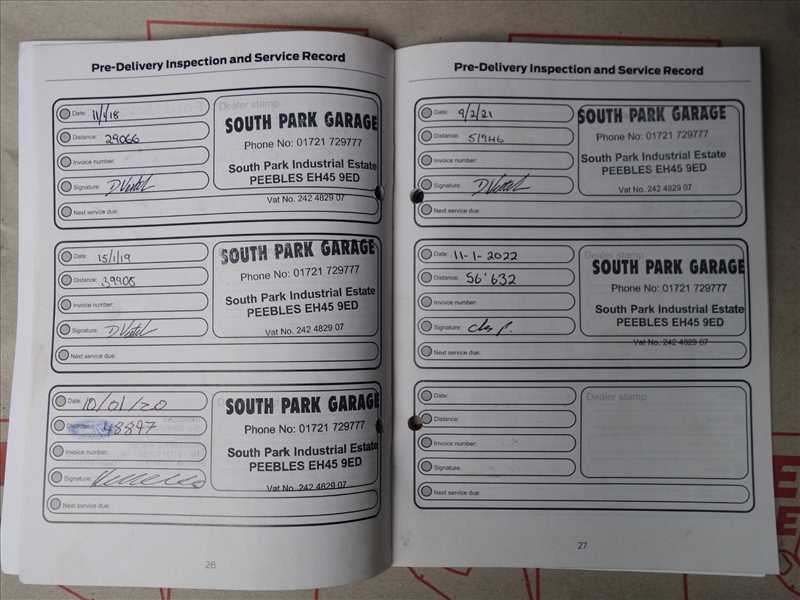 Pre-Delivery Inspection and Service Record
Date: 11/1/18
Distance: 29066
Invoice number:
Signature:
Next service due:
Dealer stamp
SOUTH PARK GARAGE
Phone No: 01721 729777
South Park Industrial Estate
PEEBLES EH45 9ED
Vat No. 242 4829 07
Date: 15/1/19
Distance: 39905
Invoice number:
Signature:
Next service due:
SOUTH PARK GARAGE
Phone No: 01721 729777
South Park Industrial Estate
PEEBLES EH45 9ED
Vat No. 242 4829 07
Date: 10/01/20
48897
Invoice number:
Signature:
Next service due:
SOUTH PARK GARAGE
Phone No: 01721 729777
South Park Industrial Estate
PEEBLES EH45 9ED
Vat No. 242 4829 07
26
Pre-Delivery Inspection and Service Record
Date: 9/2/21
Distance: 51946
Invoice number:
Signature:
Next service due:
SOUTH PARK GARAGE
Phone No: 01721 729777
South Park Industrial Estate
PEEBLES EH45 9ED
Vat No. 242 4829 07
Date: 11-1-2022
Distance: 56'632
Invoice number:
Signature:
Next service due:
Dealer stamp
SOUTH PARK GARAGE
Phone No: 01721 729777
South Park Industrial Estate
PEEBLES EH45 9ED
Vat No. 242 4829 07
Date:
Distance:
Invoice number:
Signature:
Next service due:
Dealer stamp
27